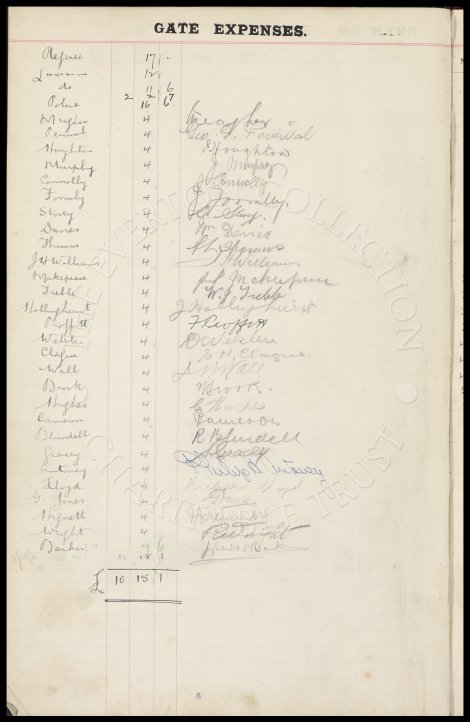 GATE EXPENSES.
Referee 17 .
Linesman 12
do 11 6
Police 16 6
2 2 7
Meagher 4
Percival 4 Geo. Percival
Houghton 4 Houghton
Murphy 4 J Murphy
Connolly 4 Connolly
Formby 4 J Formby.
Storey 4 Storey.
Davies 4 Wm Davies
Thomas 4 Thomas
J H Williams 4 Williams
Makepeace 4 Makepeace
Tribble 4 W. J Tribble
Hollinghurst 4 J Hollinghurst
Proffitt 4 F Proffitt
Webster 4 D Webster
Clague 4 S H. Clague.
Wall 4 Wall
Brook 4 Brook.
Hughes 4 E Hughes
Cameron 4 Cameron
Blundell 4 R Blundell
Gracey 4 Gracey
4
Lloyd 4
G. Jones 4 Jones
Hignett 4
Wright 4
£ 10 15 1
EVERTON COLLECTION
CHARITABLE TRUST